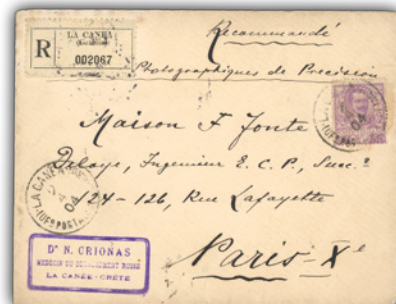 Recommandé
R
LA CANEA
002067
Photographiques de Precision
Maison F Jonte
Deloye, Ingenieur E. C. P., Succ.r
124-126, Rue Lafayette
Paris-Xe
LA CANEA
04
Dr N. CRIONAS
MEDECIN DU DETACHEMENT RUSSE
LA CANÉE-CRÈTE